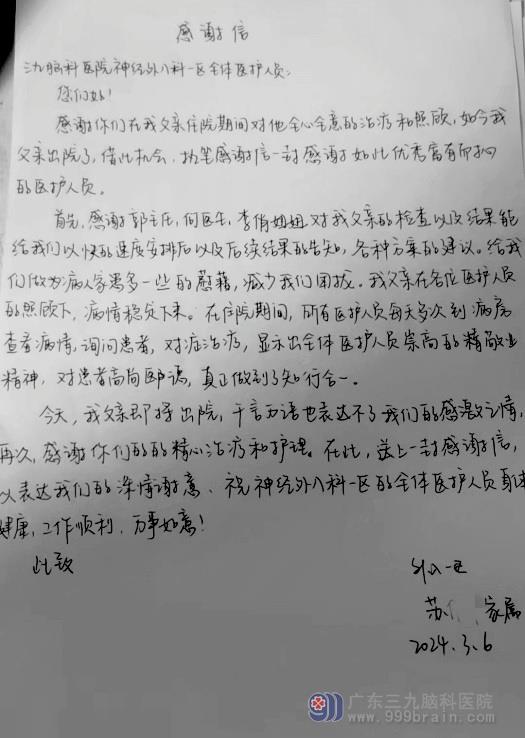 感谢信
三九脑科医院神经外八科一区全体医护人员:
您们好!
感谢你们在我父亲住院期间对他全心全意的治疗和照顾,如今我
父亲出院了,借此机会,执笔感谢信一封感谢如此优秀富有
的医护人员。
首先,感谢郭主任,何医生,李俏姐姐对我父亲的检查以及结果能
给我们以快的速度安排后以及后续结果的告知,各种方案的建议。给我
们做为病人家患多一些的慰藉,减少我们困扰。我父亲在各位医护人员
的照顾下,病情稳定下来。在住院期间,所有医护人员每天多次到病房
查看病情,询问患者,对症治疗,显示出全体医护人员崇高的精敬业
精神,对患者高尚医德,真正做到了知行合一。
今天,我父亲即将出院,千言万语也表达不了我们的感激之情,
再次,感谢你们的的精心治疗和护理。在此,送上一封感谢信,
以表达我们的深情谢意、祝神经外八科一区的全体医护人员身体
健康,工作顺利,万事如意!
此致
外八一区
苏 家属
2024.3.6
广东三九脑科医院
www.999brain.com